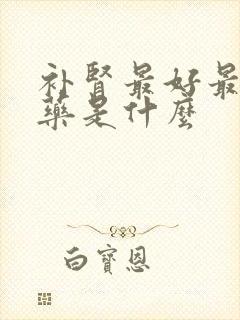 补贤最好最
药是什麼
白寶恩